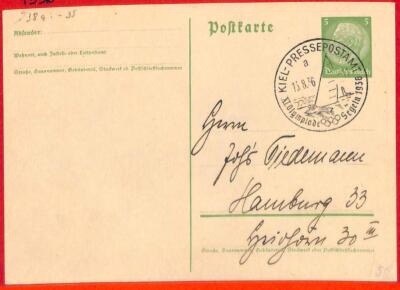 238a - 35
Absender:
Wohnort, auch Zustell- oder Leitpostamt
Straße, Hausnummer, Gebäudeteil, Stockwerk od. Postschließfachnummer
Postkarte
5 5
Deutsches Reich
KIEL-PRESSEPOSTAMT
a
13.8.36
XI. Olympiade Segeln 1936
Herrn
Johs Tiedemann
Hamburg 33
30 III
Straße, Hausnummer, Gebäudeteil, Stockwerk oder Postschließfachnummer